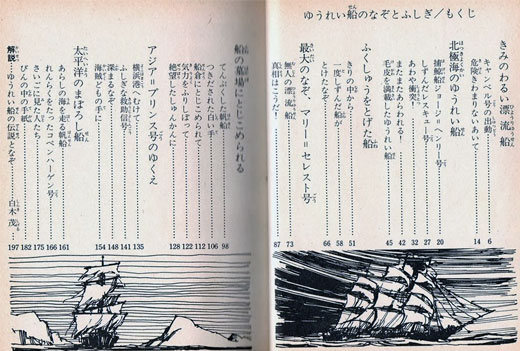 ゆうれい船のなぞとふしぎ／もくじ
きみのわるい漂流船
キャンベル号の出動 6
14
北極海のゆうれい船
捕鯨船ジョージ＝ヘンリー号 20
しずんだレスキュー号 27
あわや衝突! 32
またまたあらわれる! 42
毛皮を満載したゆうれい船 45
ふくしゅうをとげた船
きりの中から 51
一度しずんだ船が 58
66
最大のなぞ、マリー＝セレスト号
無人の漂流船 73
真相はこうだ! 87
船の墓場にとじこめられる
てんぷくした帆船 98
つきだされた白い手 106
船倉にとじこめられて 112
気力をふりしぼって 122
絶望したしゅんかんに 128
アジア＝プリンス号のゆくえ
横浜港へむけて 135
ふしぎな救助信号 141
深まるなぞ 148
海賊どもの手に 154
太平洋のまぼろし船
あらしの海を走る帆船 161
れんらくをたったコペンハーゲン号 166
さいごに見た人たち 175
びんの中の手紙 182
解説…ゆうれい船の伝説となぞ 白木 茂 197